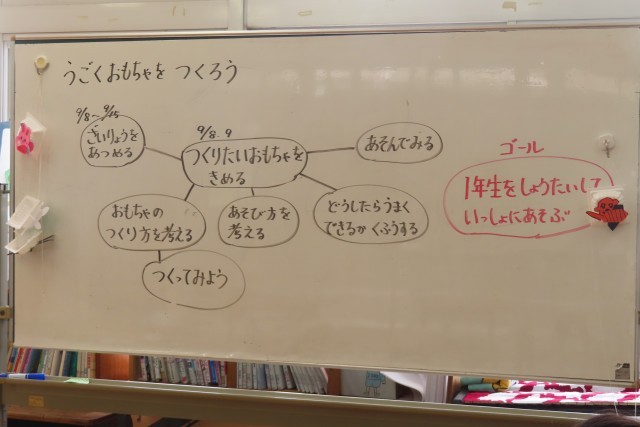 うごくおもちゃを つくろう
9/8〜9/15
ざいりょうを
あつめる
9/8.9
つくりたいおもちゃを
きめる
あそんでみる
おもちゃの
つくり方を考える
あそび方を
考える
どうしたらうまく
できるか くふうする
つくってみよう
ゴール
1年生をしょうたいして
いっしょにあそぶ